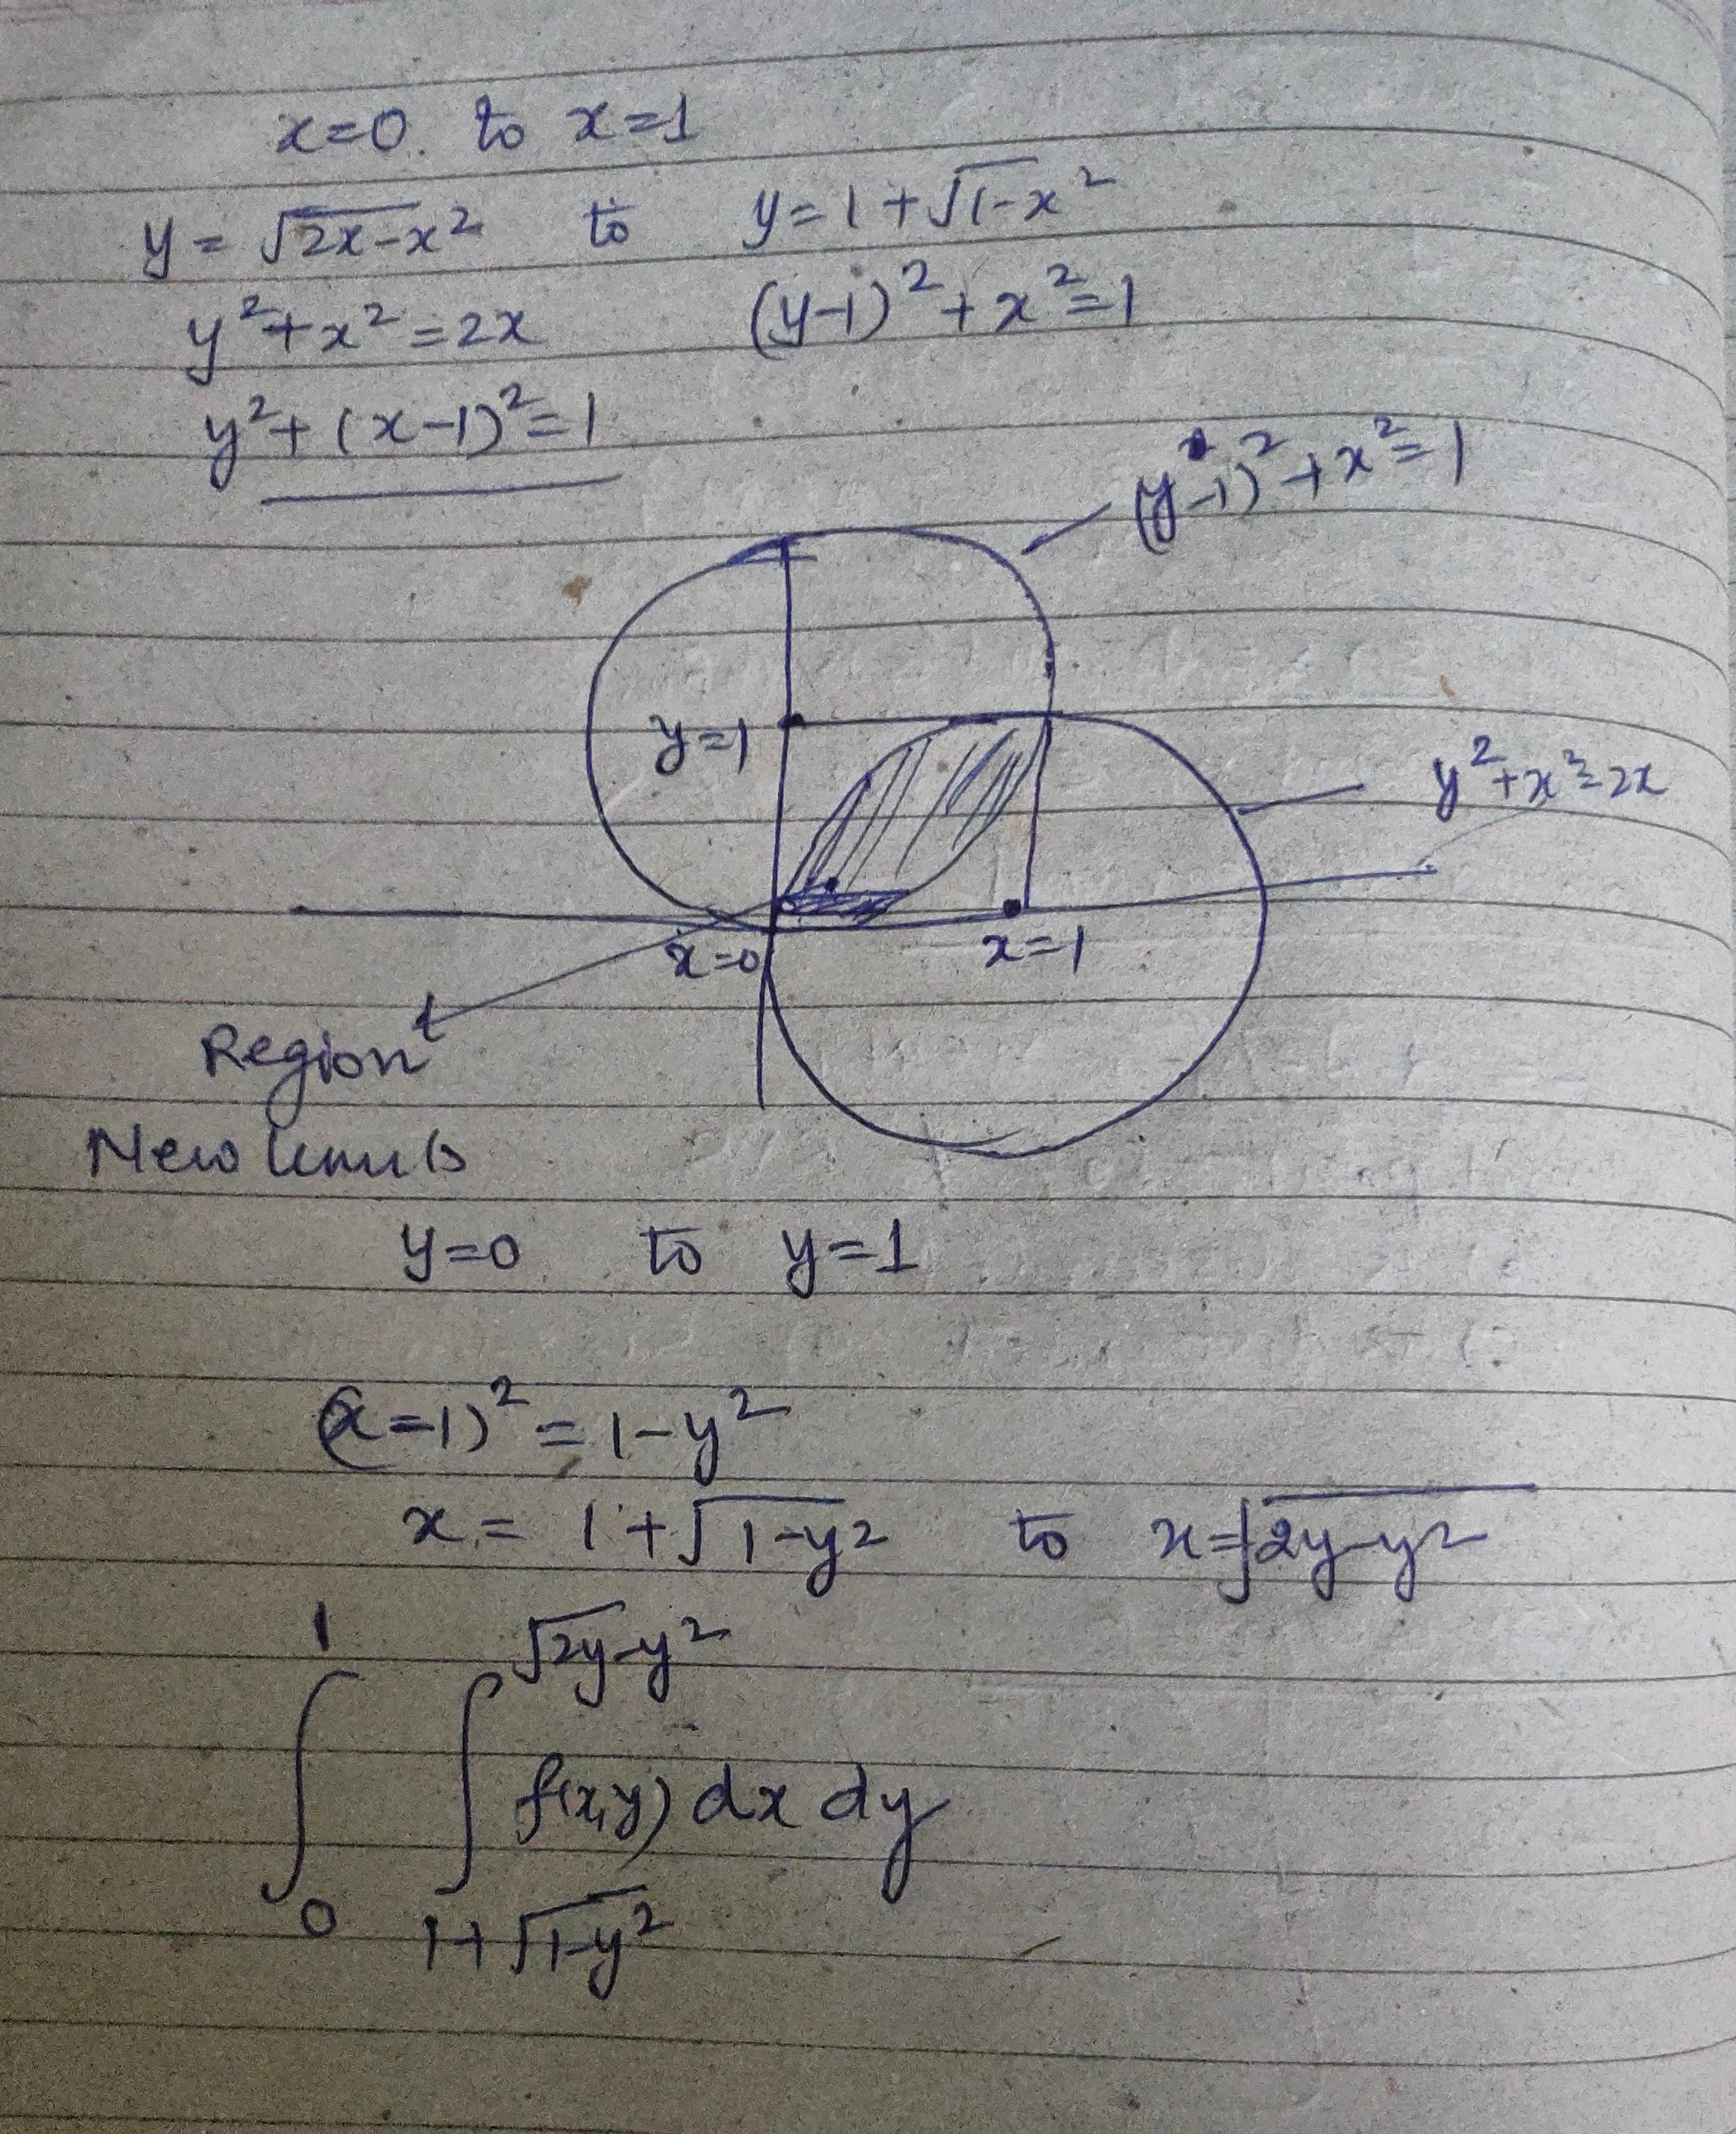 x=0. to x=1
y = √2x-x² to y=1+√1-x²
y²+x²=2x (y-1)²+x²=1
y²+(x-1)²=1
(y-1)²+x²=1
y=1
y²+x²=2x
x=0 x=1
Region
New limits
y=0 to y=1
(x-1)² = 1-y²
x = 1+√1-y² to x=√2y-y²
∫₀¹ ∫_{1+√1-y²}^{√2y-y²} f(x,y) dx dy